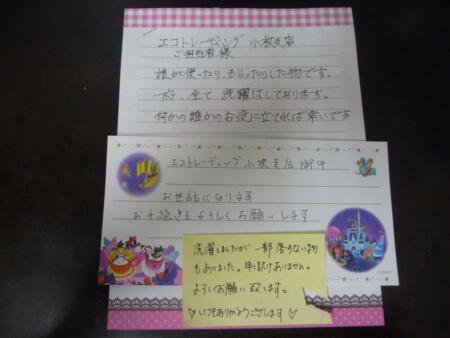 エコトレーディング小牧支店
ご担当者様
誰かが使ったり、もらったりした物です。
一応、全て洗濯はしております。
何かの誰かのお役に立てれば幸いです
エコトレーディング小牧支店御中
お世話になります
お手続きよろしくお願いします
洗濯しましたが一部落ちない物
もありました。申し訳ありません。
よろしくお願い致します。
♡いつもありがとうございます♡